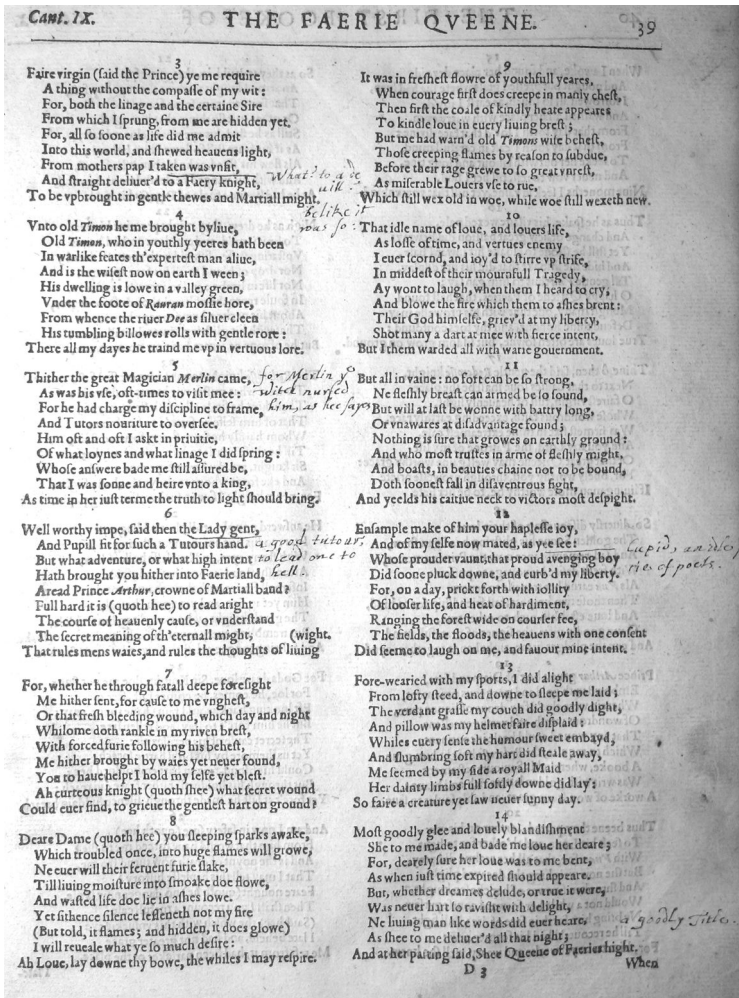 Cant. IX.
THE FAERIE QVEENE.
39
3
Faire virgin (ſaid the Prince) ye me require
A thing without the compaſſe of my wit:
For, both the linage and the certaine Sire
From which I ſprung, from me are hidden yet.
For, all ſo ſoone as life did me admit
Into this world, and ſhewed heauens light,
From mothers pap I taken was vnfit,
And ſtraight deliuer'd to a Faery knight,
To be vpbrought in gentle thewes and Martiall might.
What? to a
belike it
was ſo:
4
Vnto old Timon he me brought byliue,
Old Timon, who in youthly yeeres hath been
In warlike feates th'experteſt man aliue,
And is the wiſeſt now on earth I ween;
His dwelling is lowe in a valley green,
Vnder the foote of Rauran moſſie hore,
From whence the riuer Dee as ſiluer cleen
His tumbling billowes rolls with gentle rore:
There all my dayes he traind me vp in vertuous lore.
5
Thither the great Magician Merlin came,
As was his vſe, oft-times to viſit mee:
For he had charge my diſcipline to frame,
And Tutors nouriture to overſee.
Him oft and oft I askt in priuitie,
Of what loynes and what linage I did ſpring:
Whoſe anſwere bade me ſtill aſſured be,
That I was ſonne and heire vnto a king,
As time in her iuſt terme the truth to light ſhould bring.
for Merlin ye
witch nurſed
him, as hee ſayes
6
Well worthy impe, ſaid then the Lady gent,
And Pupill fit for ſuch a Tutours hand.
But what adventure, or what high intent
Hath brought you hither into Faerie land,
Aread Prince Arthur, crowne of Martiall band?
Full hard it is (quoth hee) to read aright
The courſe of heavenly cauſe, or vnderſtand
The ſecret meaning of th'eternall might,
(wight.
That rules mens waies, and rules the thoughts of liuing
a good tutour,
to lead one to
hell.
7
For, whether he through fatall deepe foreſight
Me hither ſent, for cauſe to me vngheſt,
Or that freſh bleeding wound, which day and night
Whilome doth rankle in my riven breſt,
With forced furie following his beheſt,
Me hither brought by waies yet neuer found,
You to haue helpt I hold my ſelfe yet bleſt.
Ah curteous knight (quoth ſhee) what ſecret wound
Could euer find, to grieue the gentleſt hart on ground?
8
Deare Dame (quoth hee) you ſleeping ſparks awake,
Which troubled once, into huge flames will growe,
Ne euer will their feruent furie ſlake,
Till liuing moiſture into ſmoake doe flowe,
And waſted life doe lie in aſhes lowe.
Yet ſithence ſilence leſſeneth not my fire
(But told, it flames; and hidden, it does glowe)
I will reueale what ye ſo much deſire:
Ah Loue, lay downe thy bowe, the whiles I may reſpire.
9
It was in freſheſt flowre of youthfull yeares,
When courage firſt does creepe in manly cheſt,
Then firſt the coale of kindly heate appeares
To kindle loue in euery liuing breſt;
But me had warn'd old Timons wiſe beheſt,
Thoſe creeping flames by reaſon to ſubdue,
Before their rage grewe to ſo great vnreſt,
As miſerable Louers vſe to rue,
Which ſtill wex old in woe, while woe ſtill wexeth new.
10
That idle name of loue, and louers life,
As loſſe of time, and vertues enemy
I euer ſcornd, and ioy'd to ſtirre vp ſtrife,
In middeſt of their mournfull Tragedy,
Ay wont to laugh, when them I heard to cry,
And blowe the fire which them to aſhes brent:
Their God himſelfe, griev'd at my liberty,
Shot many a dart at mee with fierce intent,
But I them warded all with warie gouernment.
11
But all in vaine: no fort can be ſo ſtrong,
Ne fleſhly breaſt can armed be ſo ſound,
But will at laſt be wonne with battry long,
Or vnawares at diſadvantage found;
Nothing is ſure that growes on earthly ground:
And who moſt truſtes in arme of fleſhly might,
And boaſts, in beauties chaine not to be bound,
Doth ſooneſt fall in diſaventrous fight,
And yeelds his caitiue neck to victors moſt deſpight.
12
Enſample make of him your hapleſſe ioy,
And of my ſelfe now mated, as yee ſee:
Whoſe prouder vaunt, that proud avenging boy
Did ſoone pluck downe, and curb'd my liberty.
For, on a day, prickt forth with iollity
Of looſer life, and heat of hardiment,
Ranging the foreſt wide on courſer fee,
The fields, the floods, the heauens with one conſent
Did ſeeme to laugh on me, and fauour mine intent.
Cupid,
of poets.
13
Fore-wearied with my ſports, I did alight
From lofty ſteed, and downe to ſleepe me laid;
The verdant graſſe my couch did goodly dight,
And pillow was my helmet faire diſplaid:
Whiles euery ſenſe the humour ſweet embayd,
And ſlumbring ſoft my hart did ſteale away,
Me ſeemed by my ſide a royall Maid
Her dainty limbs full ſoftly downe did lay:
So faire a creature yet ſaw neuer ſunny day.
14
Moſt goodly glee and louely blandiſhment
She to me made, and bade me loue her deare;
For, dearely ſure her loue was to me bent,
As when iuſt time expired ſhould appeare.
But, whether dreames delude, or true it were,
Was neuer hart ſo raviſht with delight,
Ne liuing man like words did euer heare,
As ſhee to me deliuer'd all that night;
And at her parting ſaid, Shee Queene of Faeries hight.
a goodly Title.
D 3
When